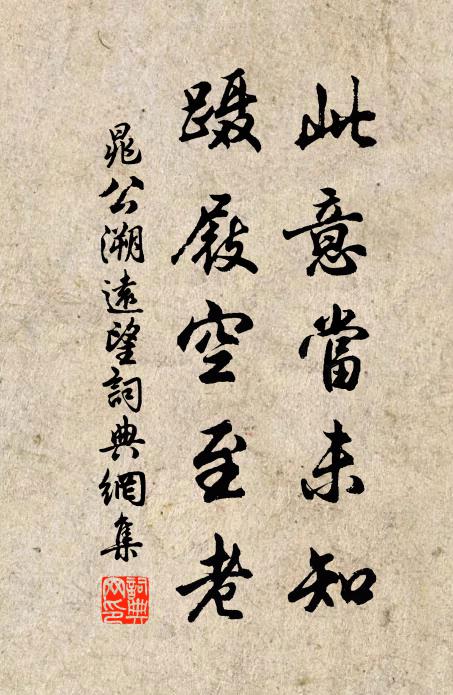 此意當未知
蹑屐空至老
晁公溯遠望詞典網集
詞典
网印